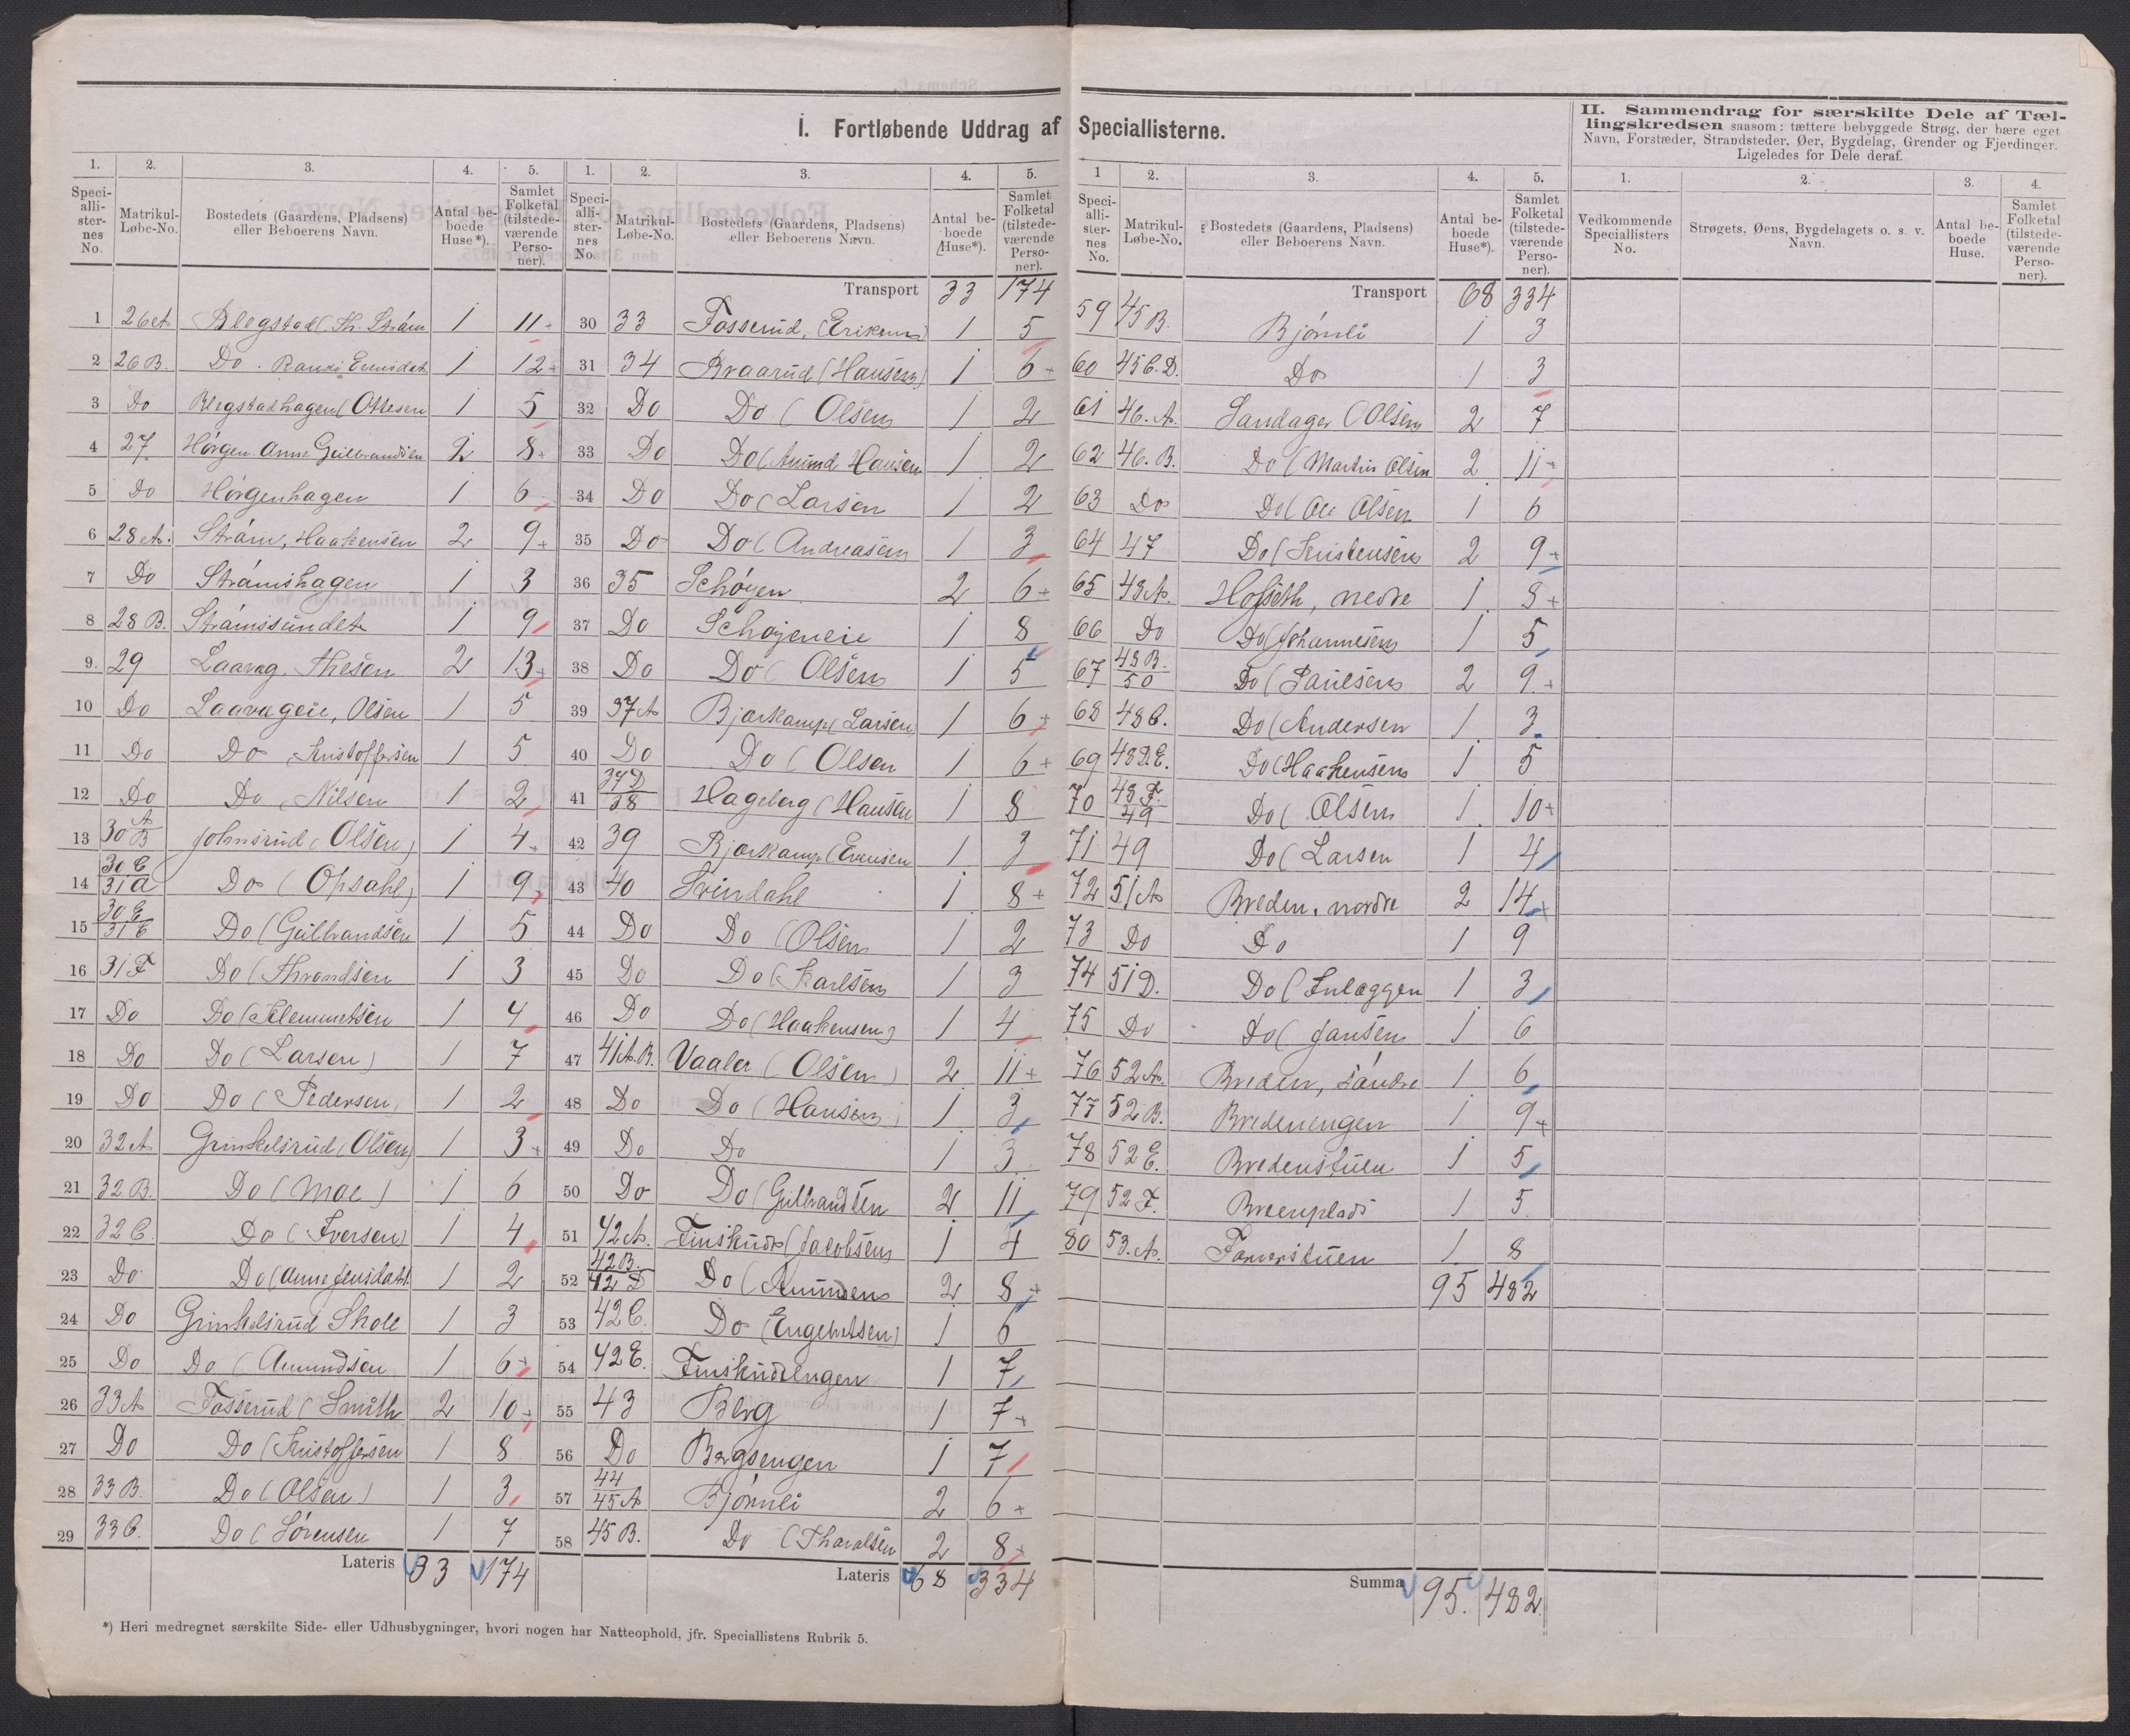 I. Fortløbende Uddrag af Speciallisterne.
II. Sammendrag for særskilte Dele af Tæl-
lingskredsen saasom: tættere bebyggede Strøg, der bære eget
Navn, Forstæder, Strandsteder, Øer, Bygdelag, Grender og Fjerdinger.
Ligeledes for Dele deraf.
1. 2. 3. 4. 5.
Speci-alli-ster-nes No. Matrikul-Løbe-No. Bostedets (Gaardens, Pladsens) eller Beboerens Navn. Antal be-boede Huse*). Samlet Folketal (tilstede-værende Perso-ner).
1 26A Blegstad (Th. Strám 1 11
2 26B. Do. Randi Evensdat 1 12
3 Do Blegstadhagen (Ottesen 1 5
4 27 Hørgen Anne Gulbrandsen 2 8
5 Do Hørgenhagen 1 6
6 28A. Stråm, Haakensen 2 9
7 Do Stråmshagen 1 3
8 28B. Stråmssundet 1 9
9. 29 Laavag. Thesen 2 13
10 Do Laavageie, Olsen 1 5
11 Do Do Kristoffersen 1 5
12 Do Do (Nilsen 1 2
13 30 A B Johnsrud (Olsen) 1 4
14 30 C 31 a Do (Opsahl) 1 9
15 30 E 31 E Do (Gulbrandsen 1 5
16 31 F Do (Thrandsen 1 3
17 Do Do (Klemmetsen 1 4
18 Do Do (Larsen) 1 7
19 Do Do (Pedersen) 1 2
20 32A Grinkelsrud (Olsen) 1 3
21 32B. Do (Moe) 1 6
22 32C. Do (Iversen) 1 4
23 Do Do (Anne Jensdatt. 1 2
24 Do Grinkelsrud Skole 1 3
25 Do Do (Amundsen 1 6
26 33A Fosserud (Smith 2 10
27 Do Do (Kristoffersen 1 8
28 33B. Do (Olsen) 1 3
29 33C. Do (Sørensen 1 7
Lateris 33 174
1. 2. 3. 4. 5.
Speci-alli-ster-nes No. Matrikul-Løbe-No. Bostedets (Gaardens, Pladsens) eller Beboerens Navn. Antal be-boede Huse*). Samlet Folketal (tilstede-værende Perso-ner).
Transport 33 174
30 33 Fosserud, (Eriksen) 1 5
31 34 Braarud (Hansen) 1 6
32 Do Do (Olsen 1 2
33 Do Do (Amund Hansen 1 2
34 Do Do (Larsen 1 2
35 Do Do (Andreasen 1 3
36 35 Schøyen 2 6
37 Do Schøjeneie 1 8
38 Do Do (Olsen 1 5
39 37A Bjørkamp (Larsen 1 6
40 Do Do (Olsen 1 6
41 37D 38 Hageberg (Hansen 1 8
42 39 Bjørkamp (Evensen 1 3
43 40 Svindahl 1 8
44 Do Do (Olsen 1 2
45 Do Do (Karlsen 1 3
46 Do Do (Haakensen) 1 4
47 41A.B. Vaaler (Olsen) 2 11
48 Do Do (Hansen) 1 3
49 Do Do 1 3
50 Do Do (Gulbrandsen 2 11
51 42A. Finskudt (Jacobsen 1 4
52 42B. 42D Do (Amundsen 2 8
53 42C. Do (Engebretsen) 1 6
54 42E. Finskudtengen 1 7
55 43 Berg 1 7
56 Do Bergsengen 1 7
57 44 45A Bjørnli 2 6
58 45B. Do (Tharalsen 2 8
Lateris 68 334
1 2. 3. 4. 5.
Speci-alli-ster-nes No. Matrikul-Løbe-No. Bostedets (Gaardens, Pladsens) eller Beboerens Navn. Antal be-boede Huse*). Samlet Folketal (tilstede-værende Perso-ner).
Transport 68 334
59 45B. Bjørnli 1 3
60 45C.D. Do 1 3
61 46.A. Sandager (Olsen 2 7
62 46.B. Do (Martin Olsen 2 11
63 Do Do (Ole Olsen 1 6
64 47 Do (Kristensen 2 9
65 48A. Hofseth, nedre 1 8
66 Do Do (Johannesen 1 5
67 48B. 50 Do (Paulsen 2 9
68 48C. Do (Andersen 1 3
69 48D.E. Do (Haakensen 1 5
70 48F. 49 Do (Olsen 1 10
71 49 Do (Larsen 1 4
72 51A Breden, nordre 2 14
73 Do Do 1 9
74 51D. Do (Inlæggen 1 3
75 Do Do (Jansen 1 6
76 52A. Breden, søndre 1 6
77 52B. Bredenengen 1 9
78 52E. Bredenstuen 1 5
79 52F. Breenplads 1 5
80 53.A. Farverstuen 1 8
95 482
Summa 95. 482.
1. 2. 3. 4.
Vedkommende Speciallisters No. Strøgets, Øens, Bygdelagets o. s. v. Navn. Antal be-boede Huse. Samlet Folketal (tilstede-værende Perso-ner).
*) Heri medregnet særskilte Side- eller Udhusbygninger, hvori nogen har Natteophold, jfr. Speciallistens Rubrik 5.